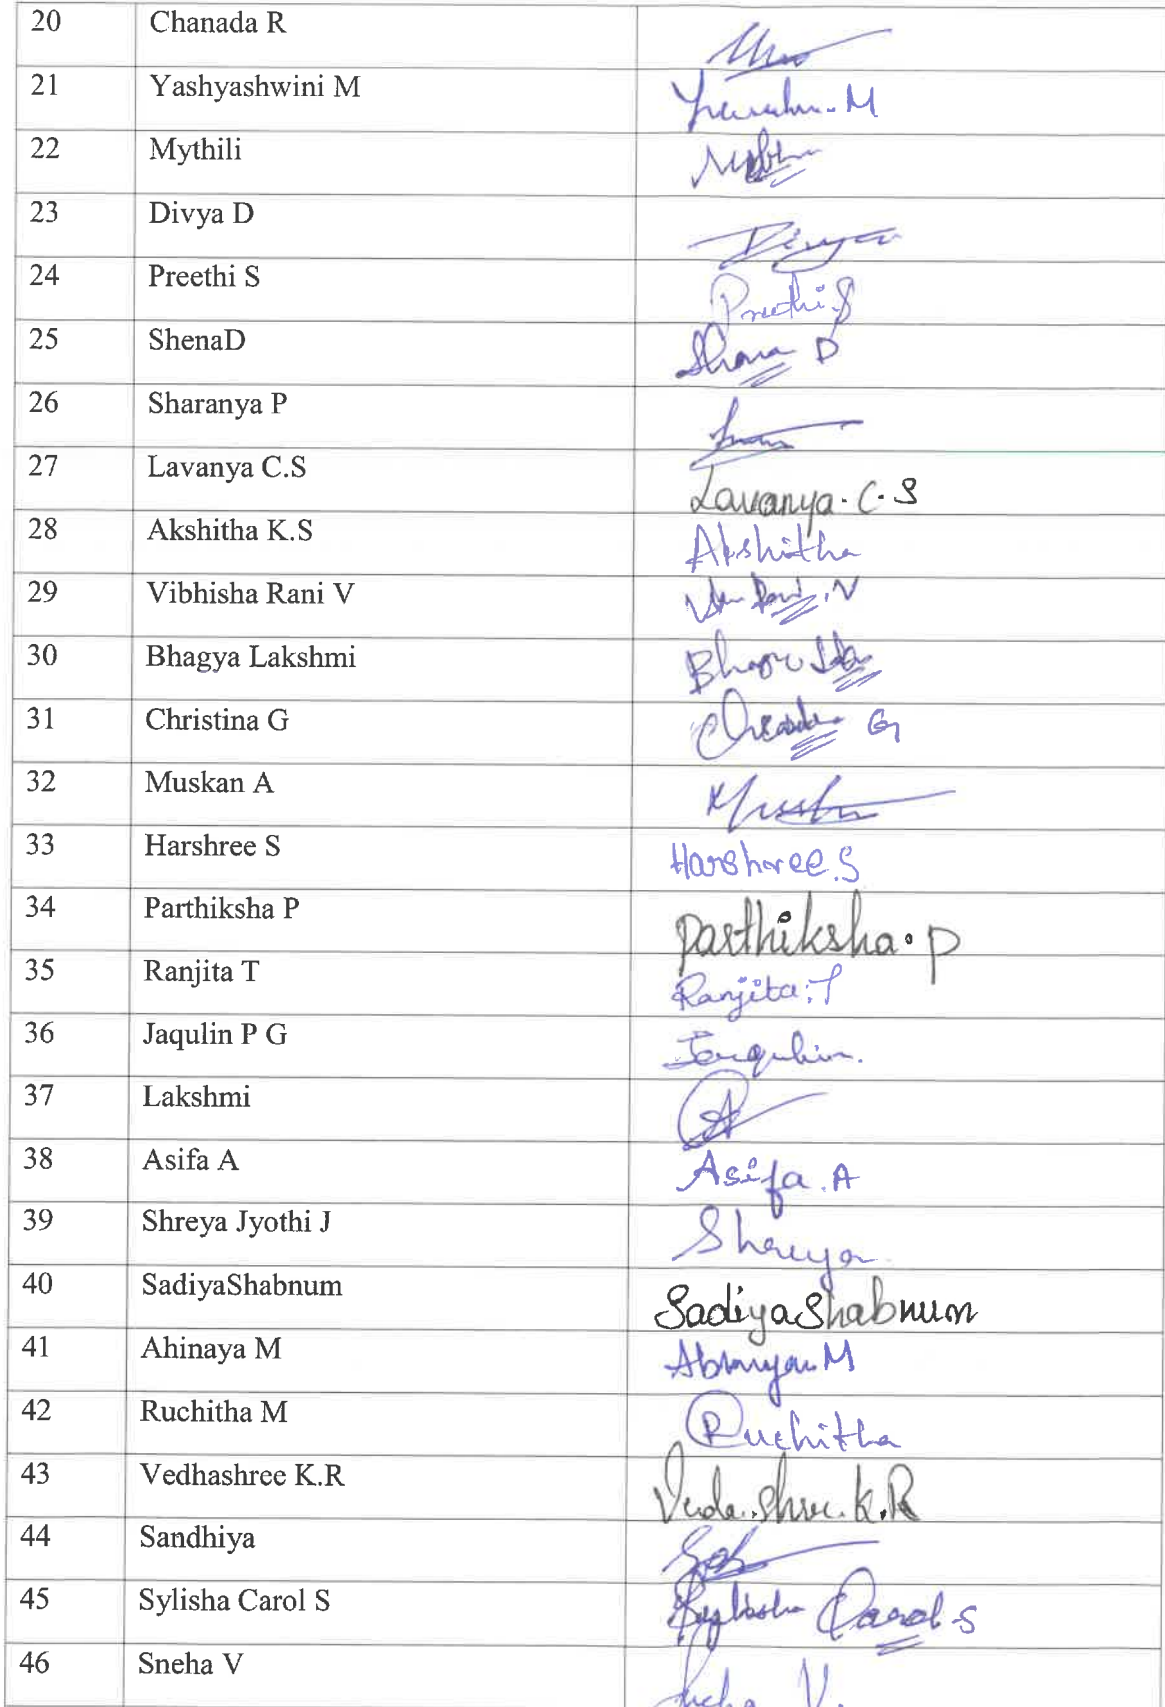 20 Chanada R
21 Yashyashwini M M
22 Mythili
23 Divya D Divya
24 Preethi S Preethi.S
25 ShenaD Shena D
26 Sharanya P
27 Lavanya C.S Lavanya. C. S
28 Akshitha K.S Akshitha
29 Vibhisha Rani V Rani .V
30 Bhagya Lakshmi
31 Christina G G
32 Muskan A
33 Harshree S Harshree.S
34 Parthiksha P Parthiksha. P
35 Ranjita T Ranjita.T
36 Jaqulin P G Jaqulin.
37 Lakshmi
38 Asifa A Asifa.A
39 Shreya Jyothi J Shreya
40 SadiyaShabnum SadiyaShabnum
41 Ahinaya M M
42 Ruchitha M Ruchitha
43 Vedhashree K.R K.R
44 Sandhiya
45 Sylisha Carol S Carol S
46 Sneha V V.